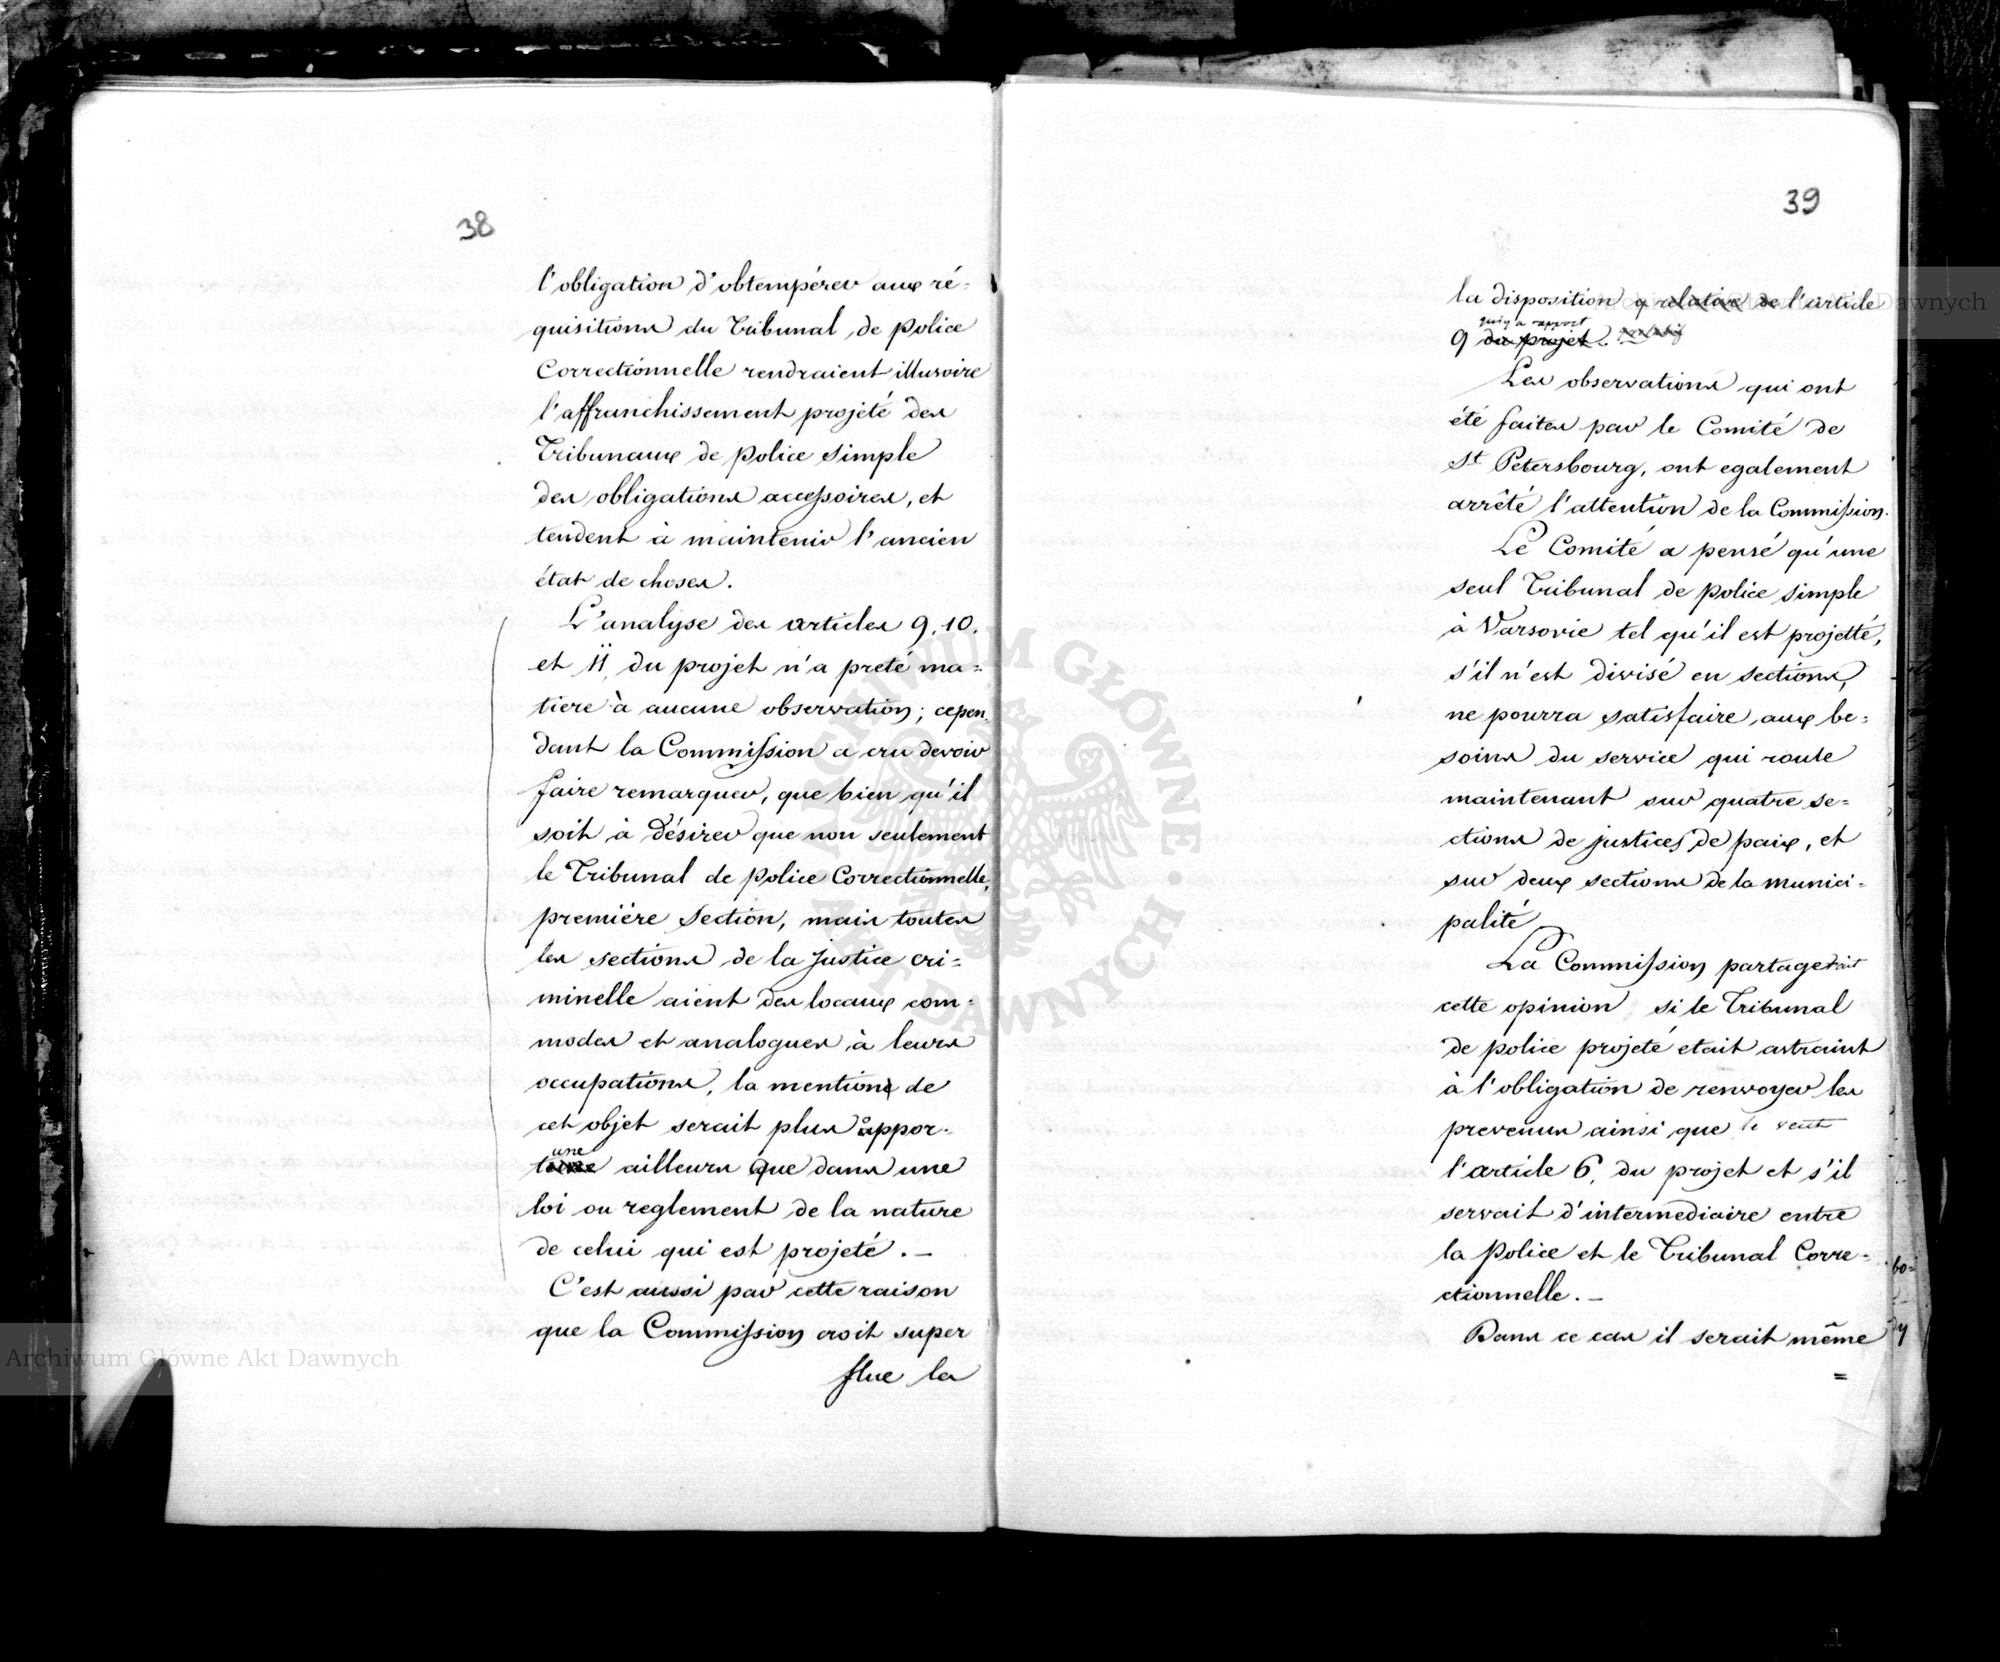 38
l'obligation d'obtempérer aux ré=
quisitions du Tribunal de police
Correctionnelle rendraient illusoire
l'affranchissement projeté des
Tribunaux de police simple
des obligations accessoires, et
tendent à maintenir l'ancien
état de choses.
L'analyse des articles 9. 10.
et 11. du projet n'a preté ma=
tiere à aucune observation; cepen=
dant la Commission a cru devoir
faire remarquer, que bien qu'il
soit à désirer que non seulement
le Tribunal de police Correctionnelle,
premiére Section, mais toutes
les sections de la Justice cri=
minelle aient des locaux com=
modes et analogues à leurs
occupations, la mention de
cet objet serait plus oppor=
une
ailleurs que dans une
loi ou reglement de la nature
de celui qui est projeté. —
C'est aussi par cette raison
que la Commission croit super
flue la
39
la disposition relative de l'article
qui y a rapport
9 du projet.
Les observations qui ont
été faites par le Comité de
St Petersbourg, ont egalement
arrêté l'attention de la Commission.
Le Comité a pensé qu'une
seul Tribunal de police simple
à Varsovie tel qu'il est projetté,
s'il n'est divisé en sections,
ne pourra satisfaire aux be=
soins du service qui roule
maintenant sur quatre se=
ctions de justices de paix, et
sur deux sections de la munici=
palité
La Commission partagerait
cette opinion si le Tribunal
de police projeté etait astraint
à l'obligation de renvoyer les
prevenus ainsi que le veut
l'article 6. du projet et s'il
servait d'intermediaire entre
la Police et le Tribunal Corre=
ctionnelle. —
Dans ce cas il serait même
=
bo=
dy
Archiwum Główne Akt Dawnych
Archiwum Główne Akt Dawnych
ARCHIWUM GŁÓWNE AKT DAWNYCH